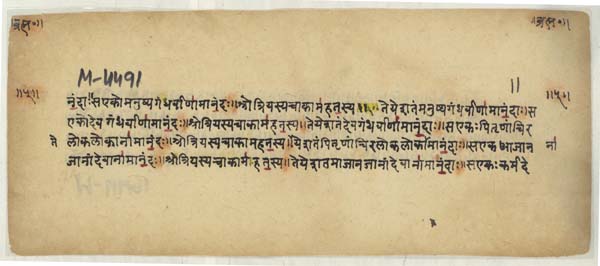 M-4491
नंदाः॥सएकोमनुष्यगंधर्वाणामानंदः॥श्रोत्रियस्यचाकामहतस्य॥तेयेशतंमनुष्यगंधर्वाणामानंदाः॥स
एकोदेवगंधर्वाणामानंदः॥श्रोत्रियस्यचाकामहतस्य॥तेयेशतंदेवगंधर्वाणामानंदाः॥सएकःपितृणांचिर
ते लोकलोकानामानंदः॥श्रोत्रियस्यचाकामहतस्य॥येशतंपितृणांचिरलोकलोकामानंदाः॥सएकआजान नां
जानांदेवानामानंदः॥श्रोत्रियस्यचाकामहतस्य॥तेयेशतमाजानजानांदेवानामानंदाः॥सएकःकर्मदे